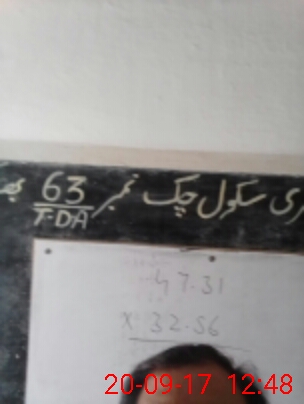 ری سکول چک نمبر 63/T-D-A بھ
47.31
x 32.56
20-09-17 12:48